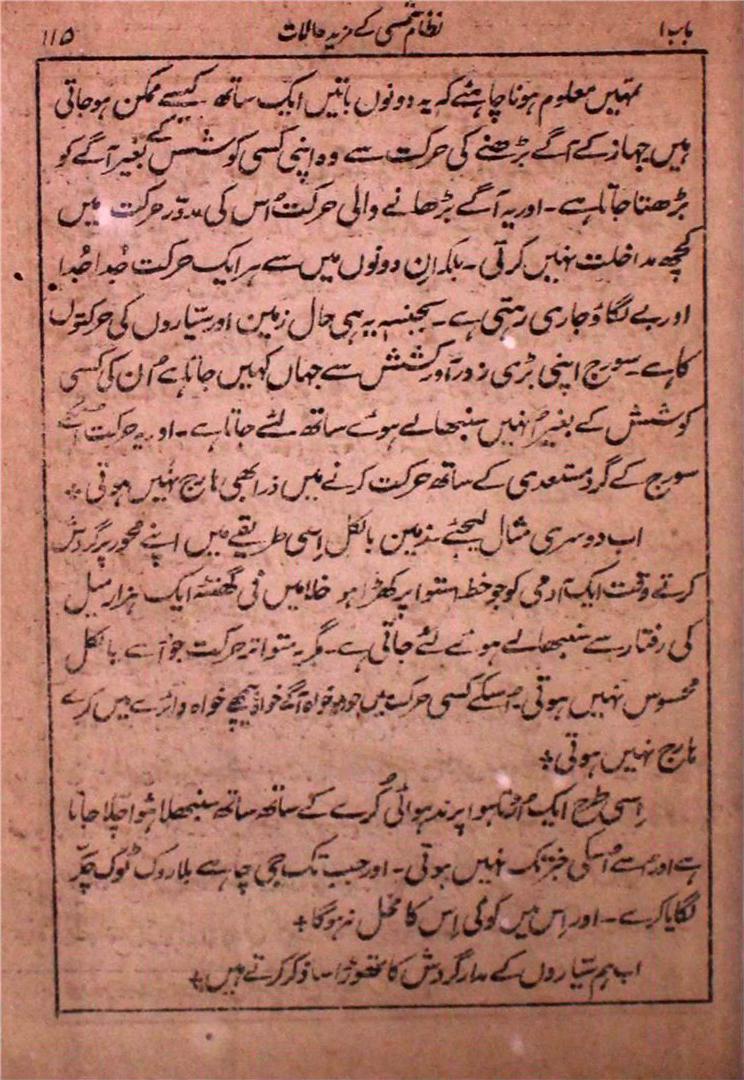 باب ۱
نظام شمسی کے مزید حالات
۱۱۵
تمہیں معلوم ہونا چاہئے کہ یہ دونوں باتیں ایک ساتھ کیسے ممکن ہو جاتی
ہیں جہاز کے آگے بڑھنے کی حرکت سے وہ اپنی کسی کوشش کے بغیر آگے کو
بڑھتا جاتا ہے۔ اور یہ آگے بڑھانے والی حرکت اُس کی مدوّر حرکت میں
کچھ مداخلت نہیں کرتی۔ بلکہ اِن دونوں میں سے ہر ایک حرکت جُدا جُدا
اور بے لگاؤ جاری رہتی ہے۔ بجنسہٖ یہی حال زمین اور سیّاروں کی حرکتوں
کا ہے۔ سورج اپنی بڑی زور آور کشش سے جہاں کہیں جاتا ہے اُن کی کسی
کوشش کے بغیر اُنہیں سنبھالے ہوئے ساتھ لئے جاتا ہے۔ اور یہ حرکت
سورج کے گرد مستعدی کے ساتھ حرکت کرنے میں ذرا بھی ہارج نہیں ہوتی +
اب دوسری مثال لیجئے زمین بالکل اِسی طریقے میں اپنے محور پر گردش
کرتے وقت ایک آدمی کو جو خط استوا پر کھڑا ہو خلا میں فی گھنٹہ ایک ہزار میل
کی رفتار سے سنبھالے ہوئے لئے جاتی ہے۔ مگر یہ متواتر حرکت جو اُسے بالکل
محسوس نہیں ہوتی۔ اُسکے کسی حرکت میں جو وہ خواہ آگے خواہ پیچھے خواہ دائرے میں کرے
ہارج نہیں ہوتی +
اِسی طرح ایک اُڑتا ہوا پرند ہوائی کُرے کے ساتھ ساتھ سنبھلا ہُوا چلا جاتا
ہے اور اُسے اُسکی خبر تک نہیں ہوتی۔ اور جب تک جی چاہے بلا روک ٹوک چکّر
لگایا کرے۔ اور اِس میں کوئی اِس کا مخل نہ ہوگا +
اب ہم سیّاروں کے مدار گردش کا تھوڑا سا ذکر کرتے ہیں +